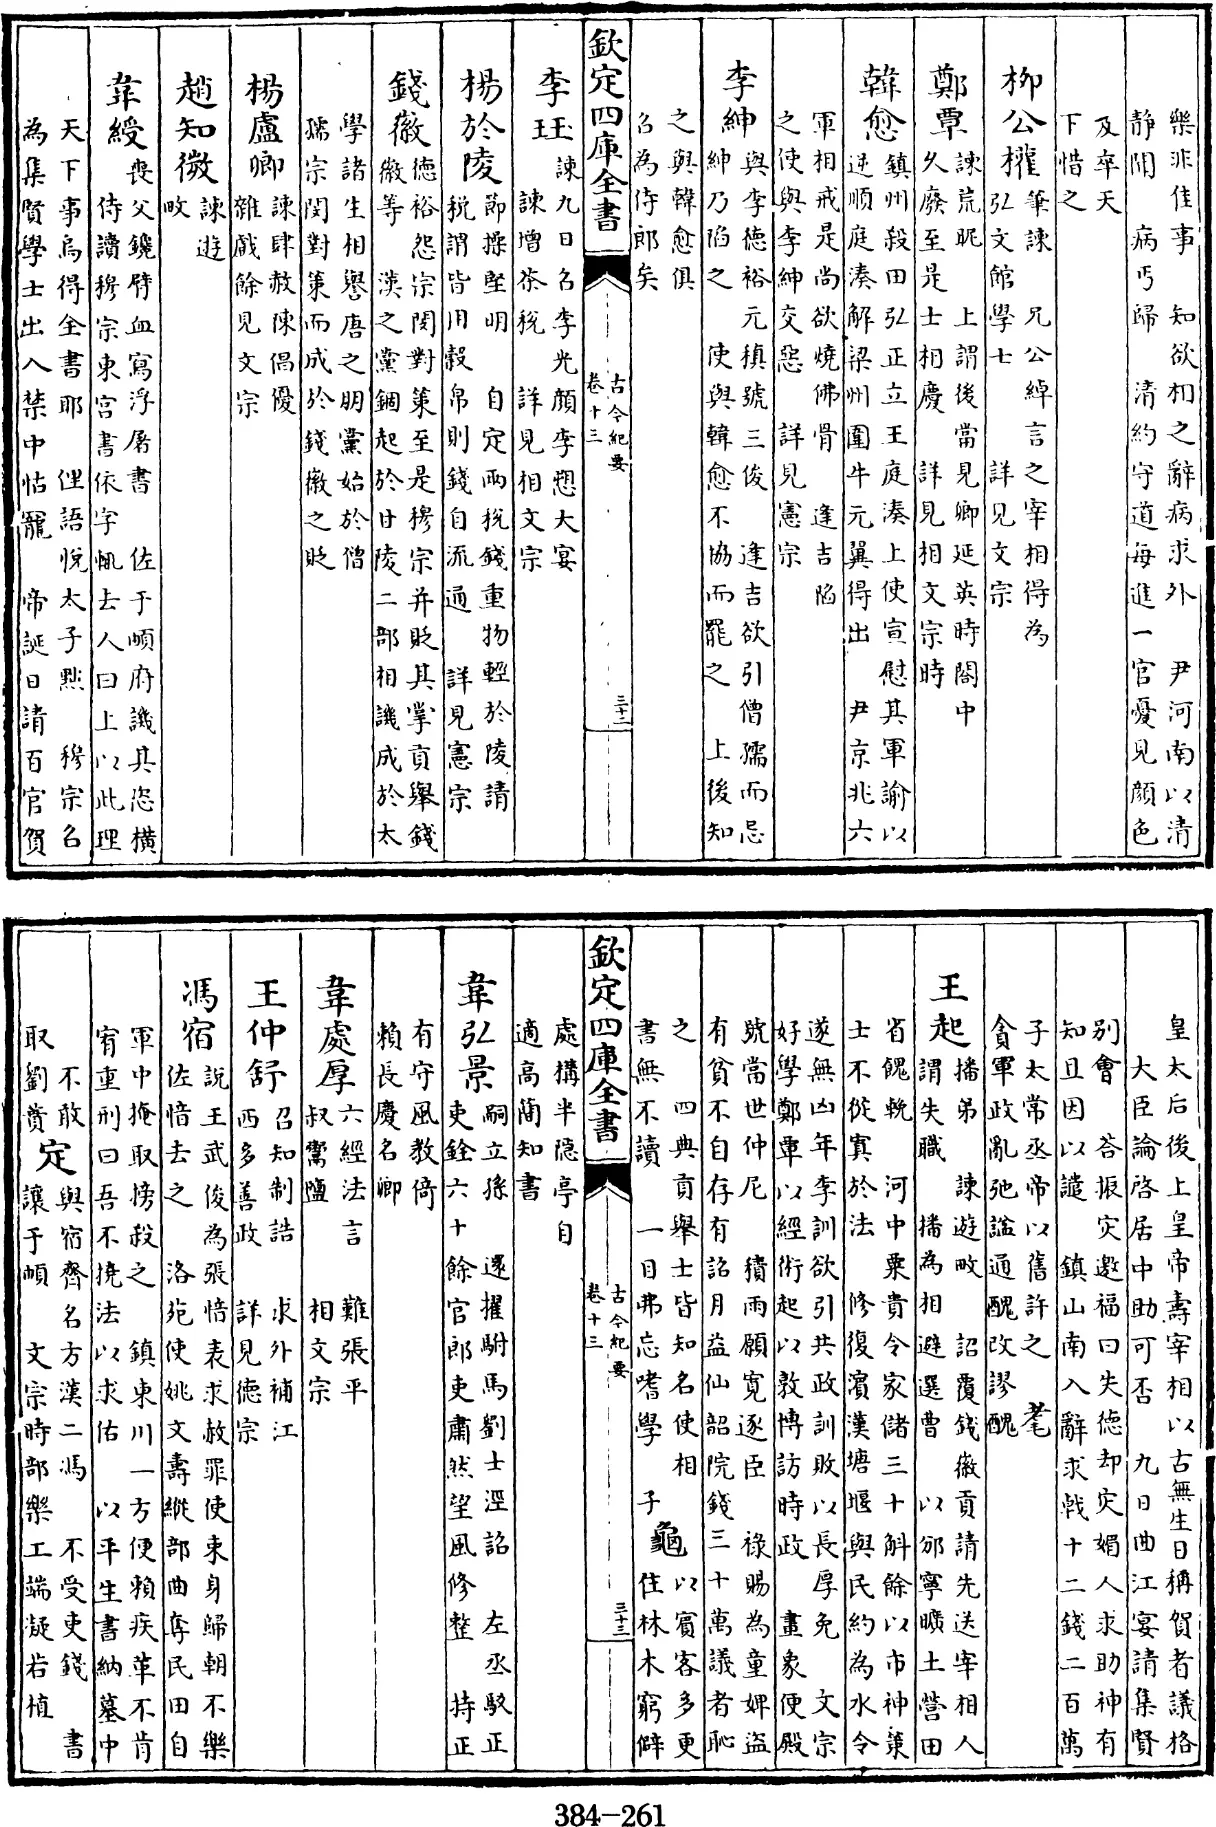 樂非佳事　知欲相之辭病求外　尹河南以清
静聞　病丐歸　清約守道每進一官憂見顔色
及卒天
下惜之
柳公權　筆諫　兄公綽言之宰相得為
弘文館學士　詳見文宗
鄭覃　諫荒昵　上謂後當見卿延英時閤中
久廢至是士相慶　詳見相文宗時
韓愈　鎮州殺田弘正立王庭湊上使宣慰其軍諭以
逆順庭湊解梁州圍牛元翼得出　尹京兆六
軍相戒是尚欲燒佛骨　逢吉陷
之使與李紳交惡　詳見憲宗
李紳　與李德裕元稹號三俊　逢吉欲引僧孺而忌
紳乃陷之　使與韓愈不協而罷之　上後知
之與韓愈俱
召為侍郎矣
欽定四庫全書
古今紀要
卷十三
三十二
李珏　諫九日召李光顔李愬大宴
諫增茶稅　詳見相文宗
楊於陵　節操堅明　自定兩稅錢重物輕於陵請
稅謂皆用穀帛則錢自流通　詳見憲宗
錢徽　德裕怨宗閔對策至是穆宗并貶其掌貢舉錢
徽等　漢之黨錮起於甘陵二部相譏成於太
學諸生相譽唐之朋黨始於僧
孺宗閔對策而成於錢徽之貶
楊盧卿　諫肆赦陳倡優
雜戲餘見文宗
趙知微　諫遊
畋
韋綬　喪父鑱臂血寫浮屠書　佐于頔府譏其恣橫
侍讀穆宗東宮書依字輒去人曰上以此理
天下事烏得全書耶　俚語悅太子黜　穆宗召
為集賢學士出入禁中怙寵　帝誕日請百官賀
皇太后後上皇帝壽宰相以古無生日稱賀者議格
大臣論啓居中助可否　九日曲江宴請集賢
別會　答振灾邀福曰失德却灾媚人求助神有
知且因以譴　鎮山南入辭求戟十二錢二百萬
子太常丞帝以舊許之　耄
貪軍政亂弛謚通醜改謬醜
王起　播弟　諫遊畋　詔覆錢徽貢請先送宰相人
謂失職　播為相避選曹　以邠寧曠土營田
省餽輓　河中粟貴令家儲三十斛餘以市神策
士不從寘於法　修復濵漢塘堰與民約為水令
遂無凶年李訓欲引共政訓敗以長厚免　文宗
好學鄭覃以經術起以敦博訪時政　畫象便殿
號當世仲尼　積雨願寛逐臣　祿賜為童婢盜
有貧不自存有詔月益仙韶院錢三十萬議者恥
之　四典貢舉士皆知名使相
書無不讀　一目弗忘嗜學　子龜　以賓客多更
住林木窮僻
欽定四庫全書
古今紀要
卷十三
三十三
處構半隠亭自
適高簡知書
韋弘景　嗣立孫　還擢駙馬劉士涇詔　左丞駁正
吏銓六十餘官郎吏肅然望風修整　持正
有守風教倚
賴長慶名卿
韋處厚　六經法言　難張平
叔鬻鹽　相文宗
王仲舒　召知制誥　求外補江
西多善政　詳見德宗
馮宿　說王武俊為張愔表求赦罪使束身歸朝不樂
佐愔去之　洛苑使姚文壽縱部曲奪民田自
軍中掩取搒殺之　鎮東川一方便賴疾革不肯
宥重刑曰吾不撓法以求佑　以平生書納墓中
不敢
取劉蕡　定　與宿齊名方漢二馮　不受吏錢　書
讓于頔　文宗時部樂工端凝若植
384-261